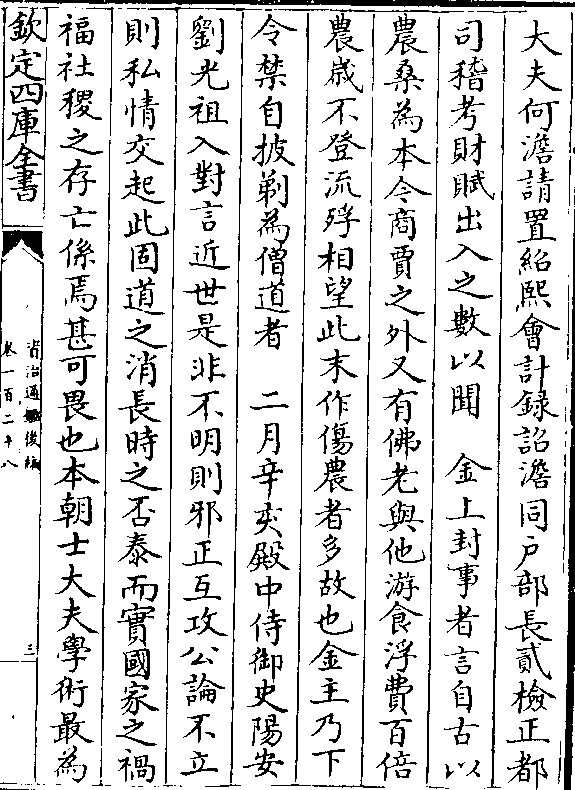 大夫何澹請置紹熙會計録詔澹同户部長貳檢正都
司稽考財賦出入之數以聞　金上封事者言自古以
農桑為本今商賈之外又有佛老與他游食浮費百倍
農歳不登流殍相望此末作傷農者多故也金主乃下
令禁自披剃為僧道者　二月辛亥殿中侍御史陽安
劉光祖入對言近世是非不明則邪正互攻公論不立
則私情交起此固道之消長時之否泰而實國家之禍
福社稷之存亡係焉甚可畏也本朝士大夫學術最為
欽定四庫全書
資治通鑑後編
卷一百二十八
三